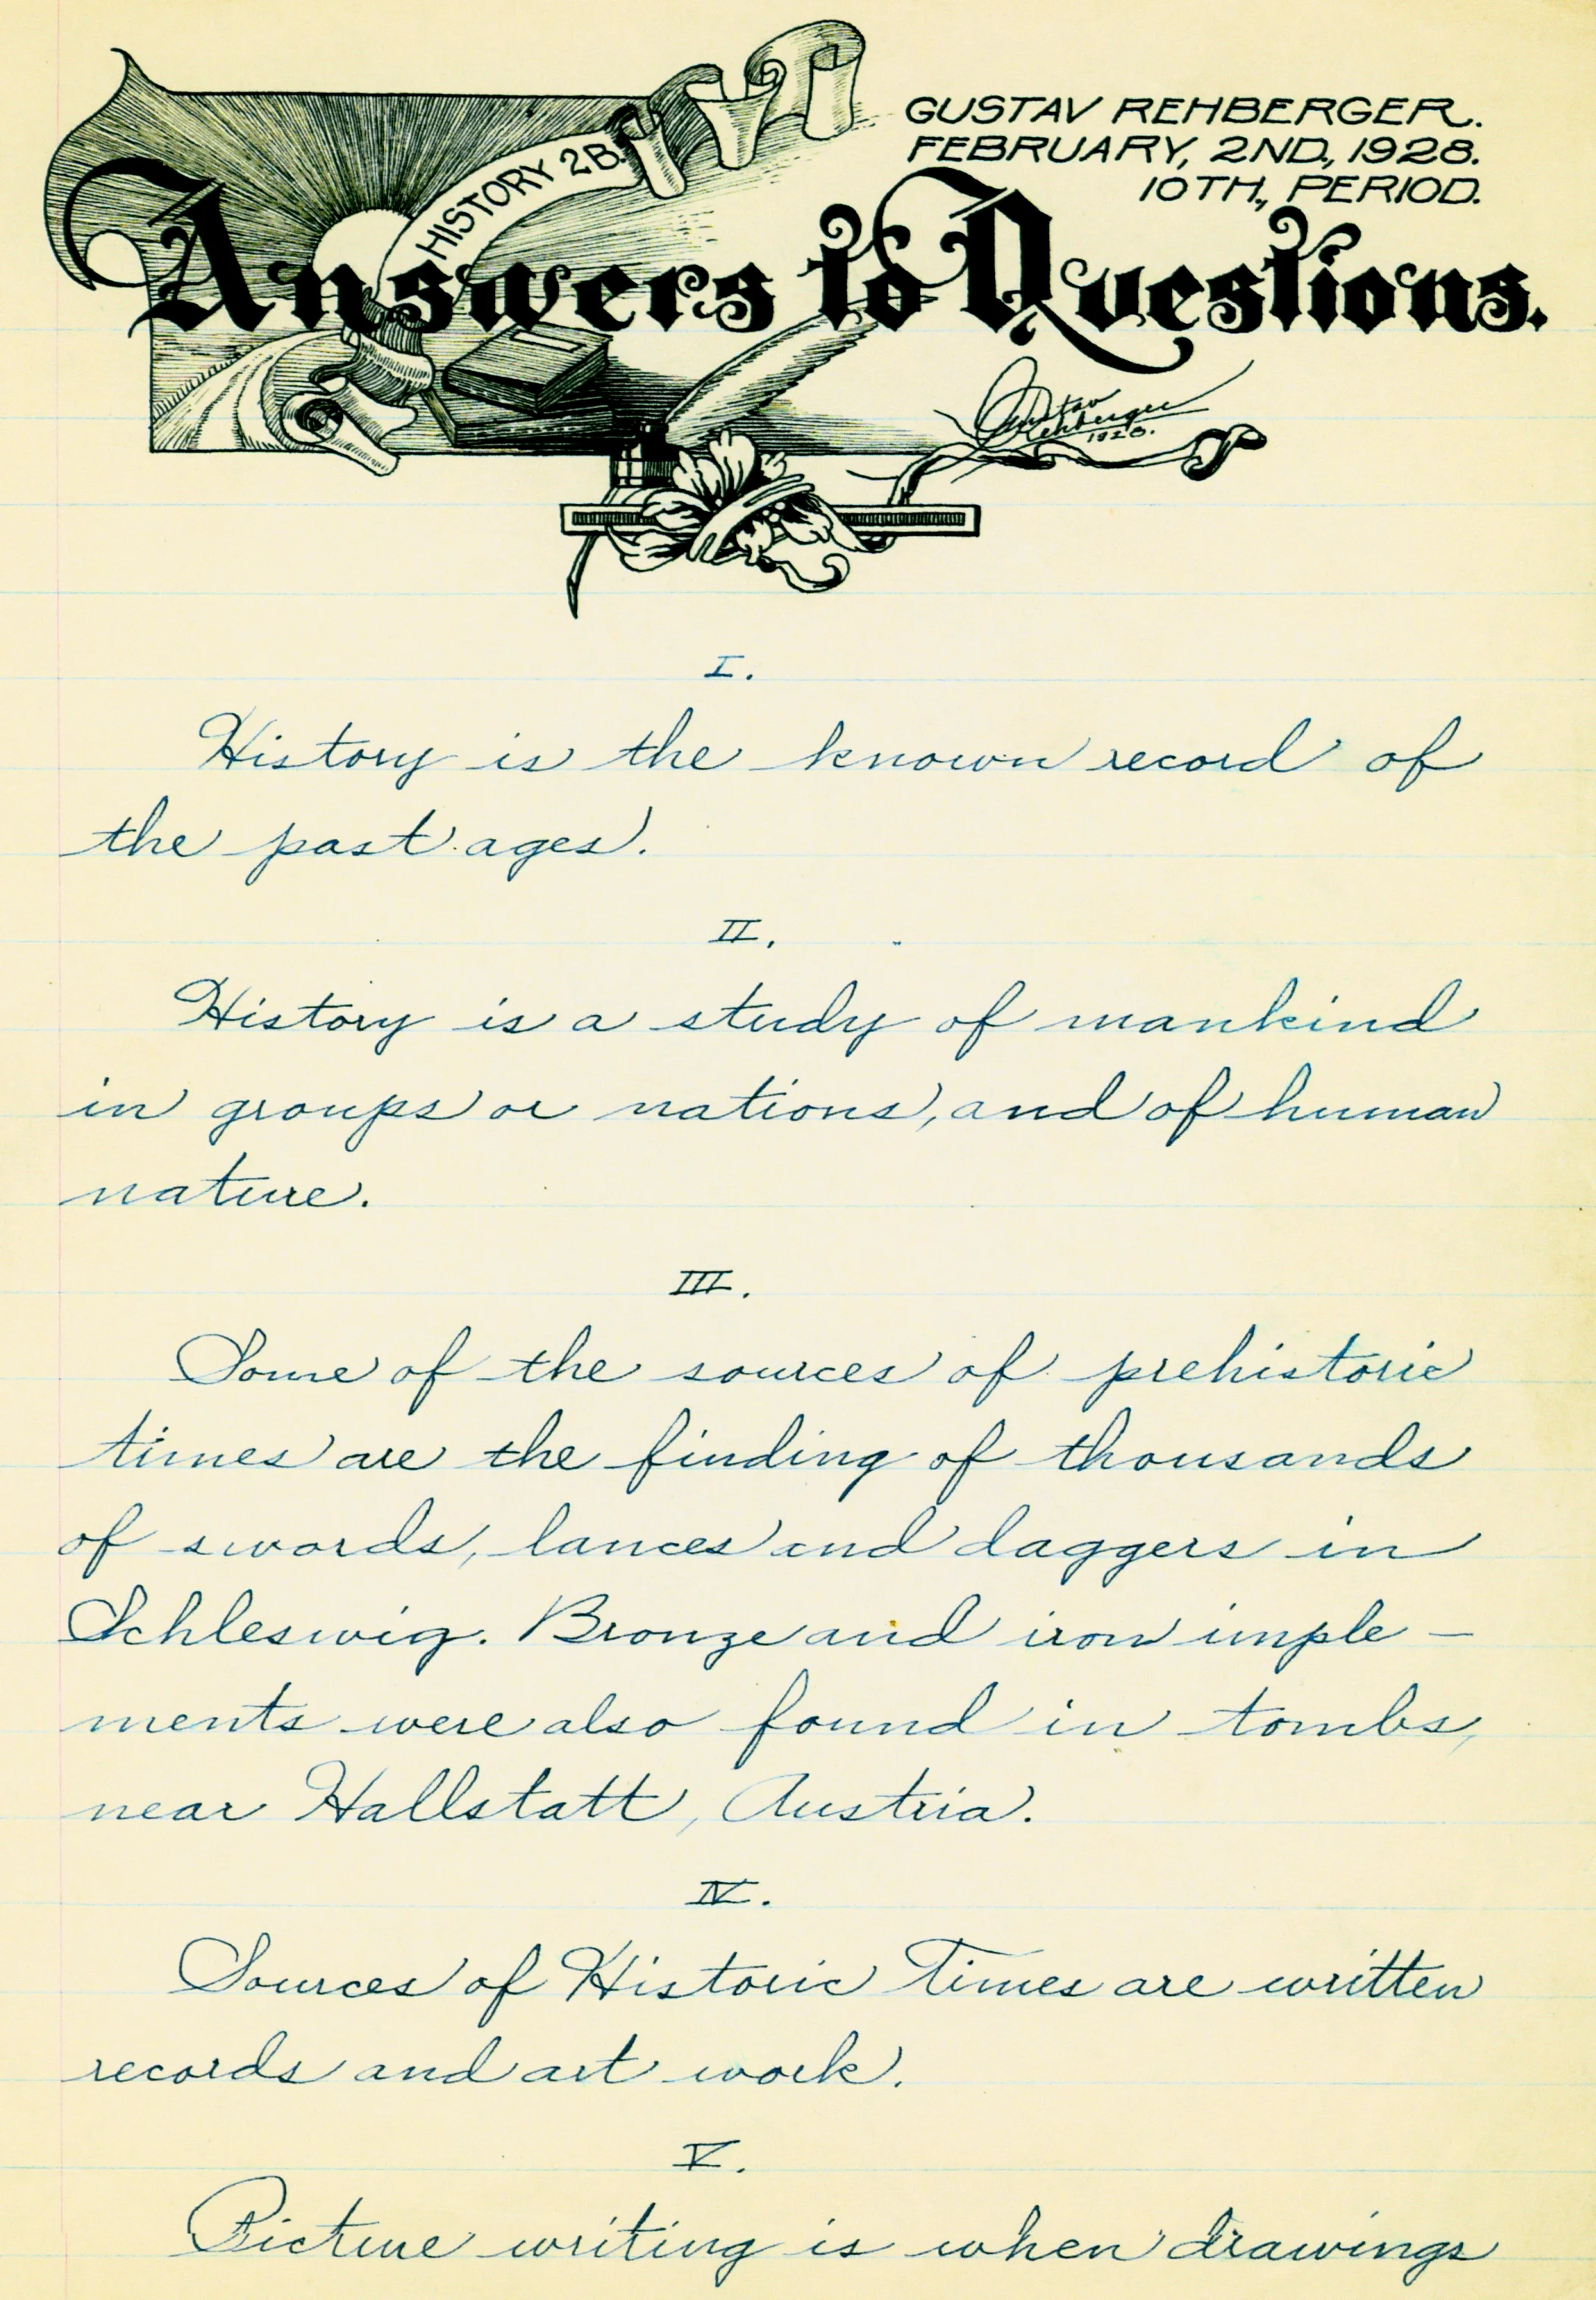 GUSTAV REHBERGER.
FEBRUARY, 2ND., 1928.
10TH., PERIOD.
HISTORY 2B.
Answers to Questions.
Gustav
Rehberger
1928.
I.
History is the known record of
the past ages.
II.
History is a study of mankind
in groups or nations, and of human
nature.
III.
Some of the sources of prehistoric
times are the finding of thousands
of swords, lances and daggers in
Schleswig. Bronze and iron imple-
ments were also found in tombs,
near Hallstatt, Austria.
IV.
Sources of Historic Times are written
records and art work.
V.
Picture writing is when drawings